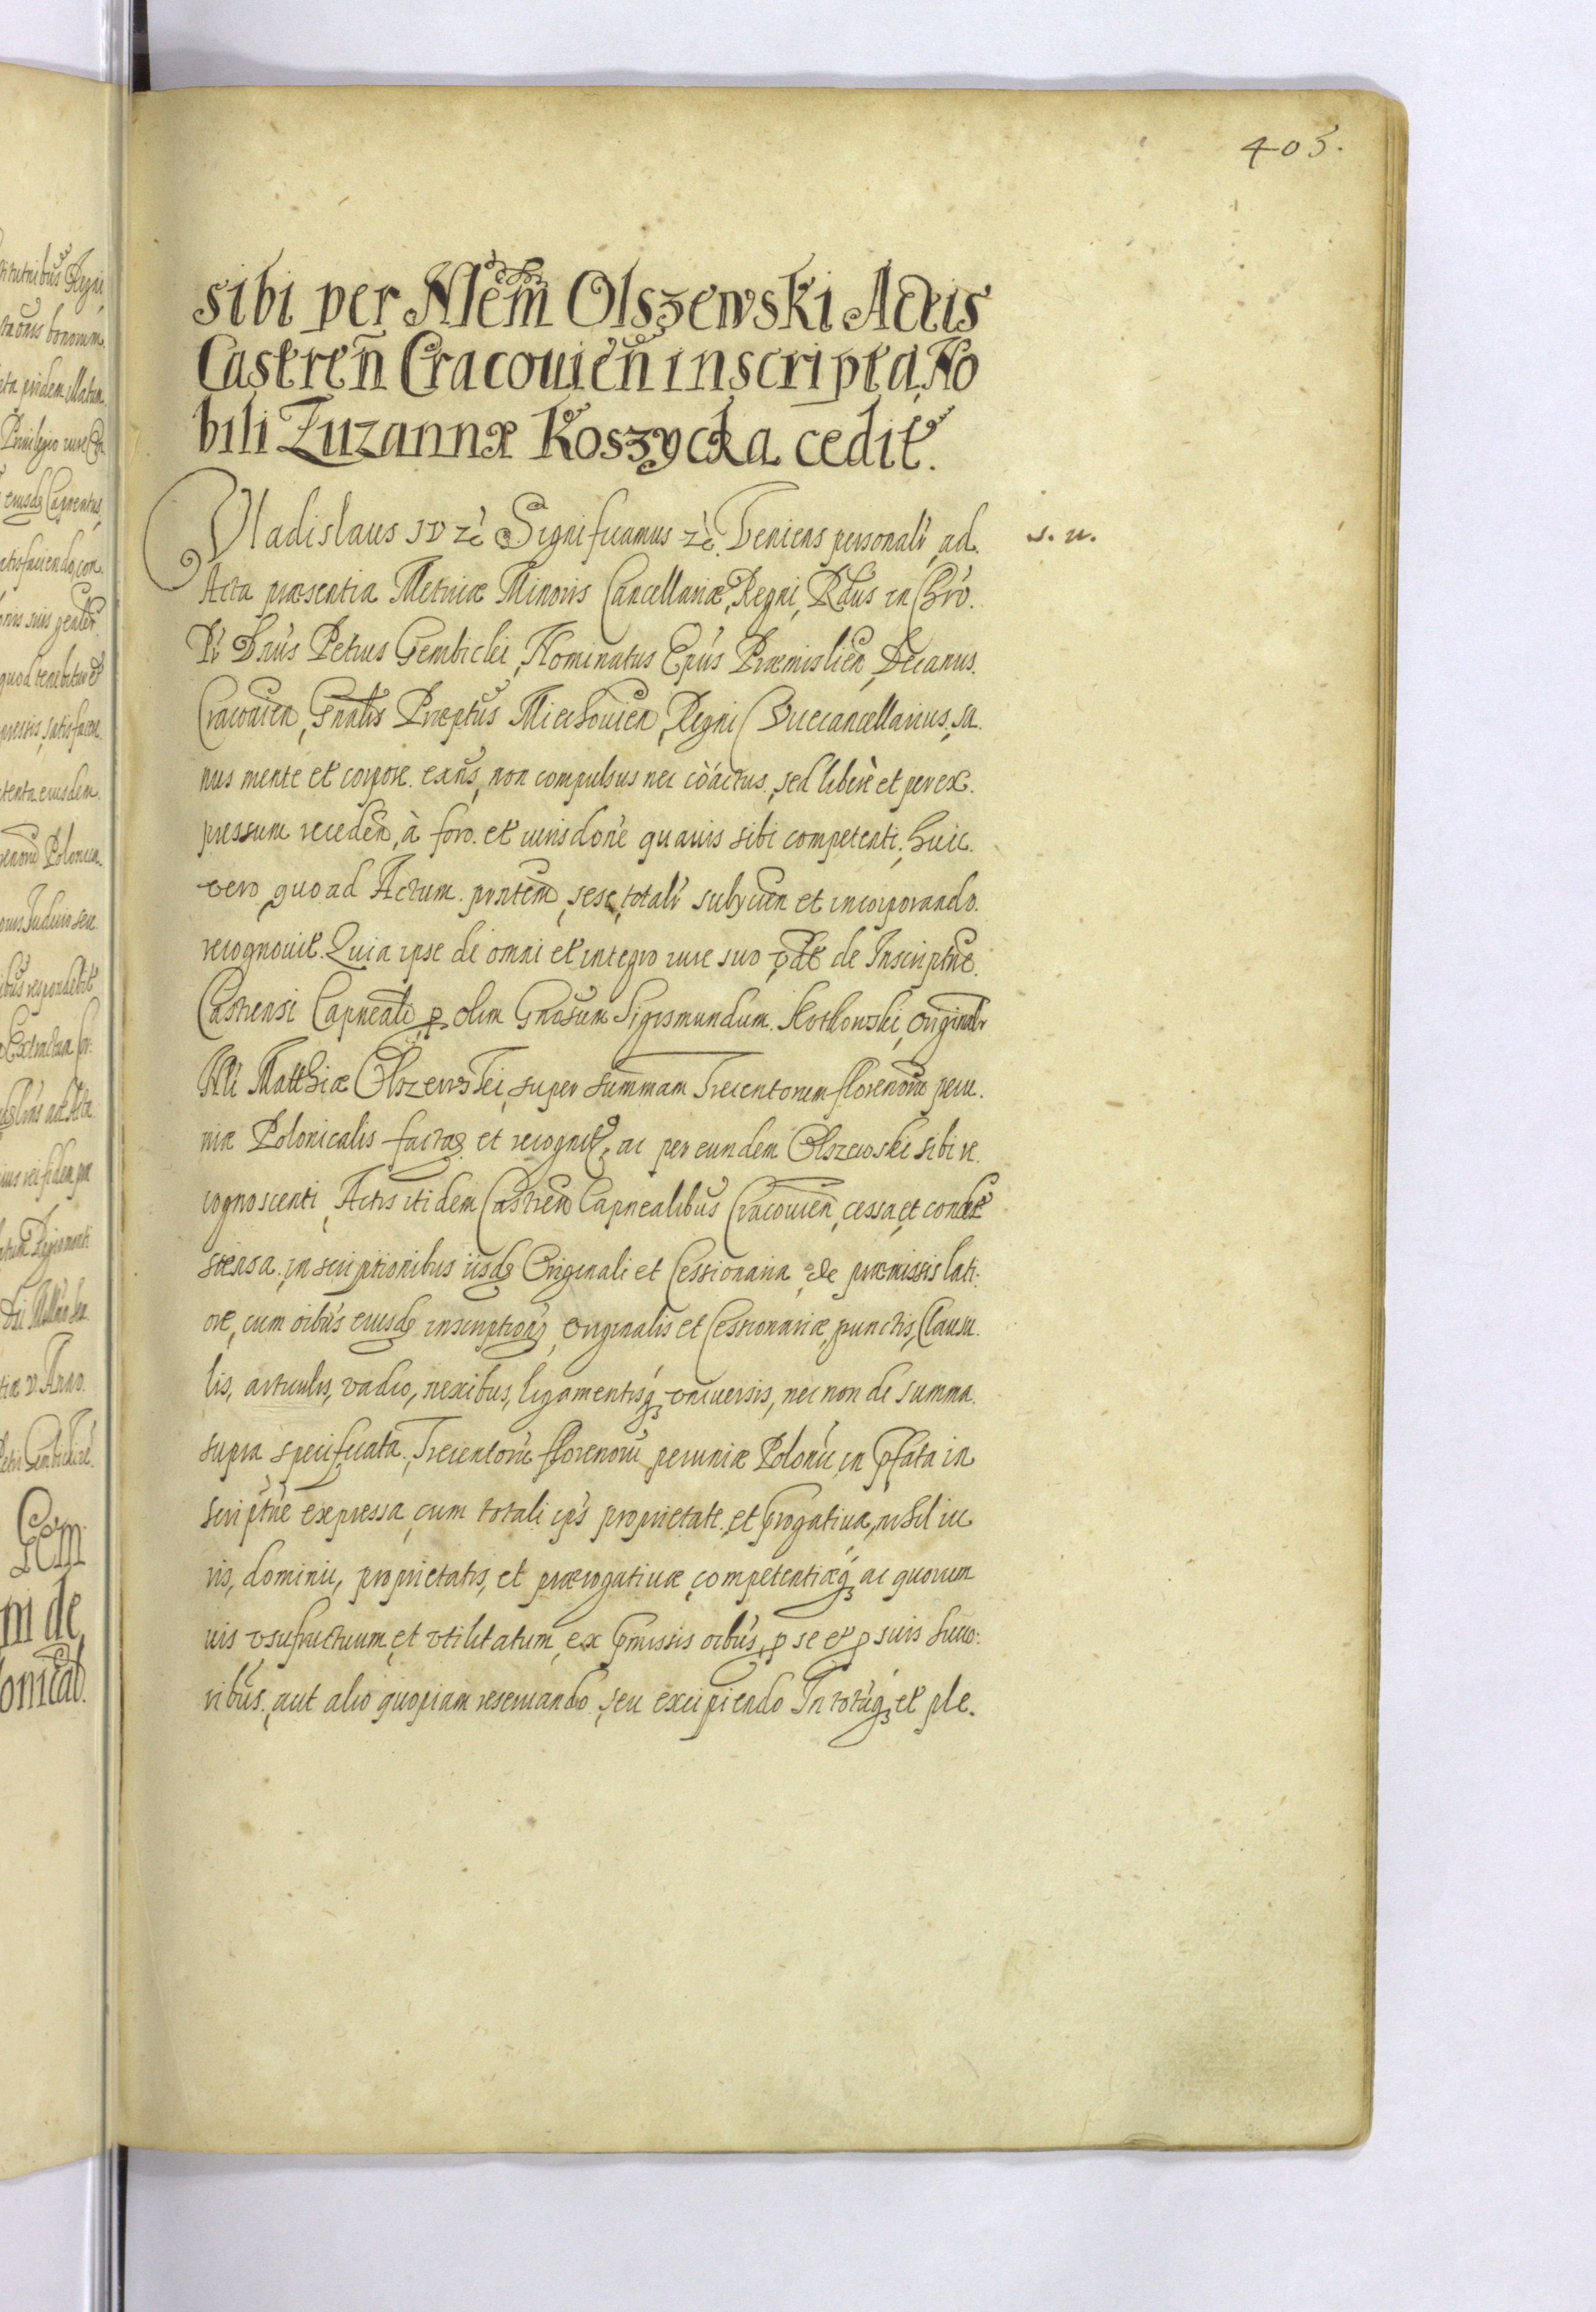 403.
sibi per Nlem Olszewski Actis
Castren̄ Cracouien̄ inscripta, No
bili Zuzannæ Koszycka cedit.
Vladislaus IV ze Significamus ze Veniens personalr ad.
s. n.
Acta præsentia Metricæ Minoris Cancellariæ Regni, Rdus in Chro.
Pr Dnus Petrus Gembicki, Nominatus Epus Præmislien, Decanus.
Cracouien, Gnalis Præptus Miechouien, Regni Vicecancellarius, sa
nus mente et corpore exns, non compulsus nec coactus, sed liberè et per ex.
pressum receden, à foro et iurisdone quauis sibi competenti, huic.
vero, quo ad Actum pntem, sese totalr subijcien et incorporando.
recognouit. Quia ipse de omni et integro iure suo pdt de Inscriptne.
Castrensi Capneali p olim Gnosum Sigismundum Kotkowski, originalr
Nli Matthiæ Olszewskj, super summam Trecentorum florenorum pecu.
niæ Polonicalis factaq et recognit, ac per eundem Olszewski sibi re.
cognoscenti, Actis itidem Castren Capnealibus Cracouien, cessa, et conde
scensa, inscriptionibus iisdq Originali et Cessionaria, de præmissis lati:
ore, cum oibus eiusdq inscriptionis, originalis et Cessionariæ, punctis, Clausu.
lis, articulis, vadio, nexibus, ligamentisq vniuersis, nec non de summa.
supra specificata, Trecentorū florenorū pecuniæ Polonii in pfata in
scriptne expressa, cum totali ips proprietate, et progatiua, nihil iu
ris, dominii, proprietatis, et prærogatiuæ, competentiæq, ac quorum
uis vsufructuum, et vtilitatum, ex pmissis oibus, p se et p suis succo:
ribus, aut alio quopiam reseruando, seu excipiendo In totuq, et ple.